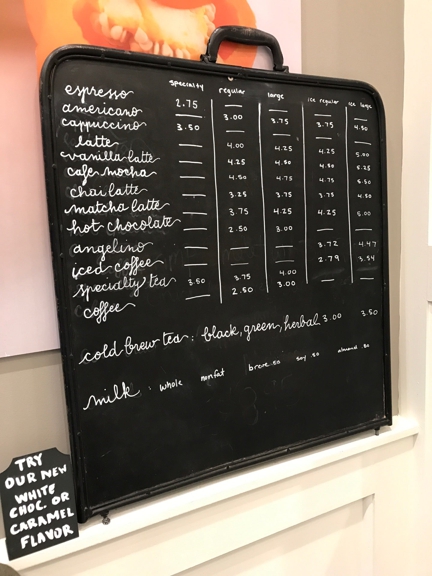 specialty regular large ice regular ice large
espresso 2.75 — — — —
americano — 3.00 3.75 3.75 4.50
cappuccino 3.50 — — — —
latte — 4.00 4.25 4.25 5.00
vanilla latte — 4.25 4.50 4.50 5.25
cafe mocha — 4.50 4.75 4.75 5.50
chai latte — 3.25 3.75 3.75 4.50
matcha latte — 3.75 4.25 4.25 5.00
hot chocolate — 2.50 3.00 — —
angelino — — — 3.72 4.47
iced coffee — — — 2.79 3.54
specialty tea 3.50 3.75 4.00 — —
coffee — 2.50 3.00
cold brew tea: black, green, herbal 3.00 3.50
milk: whole nonfat breve .50 soy .50 almond .80
TRY
OUR NEW
WHITE
CHOC. OR
CARAMEL
FLAVOR